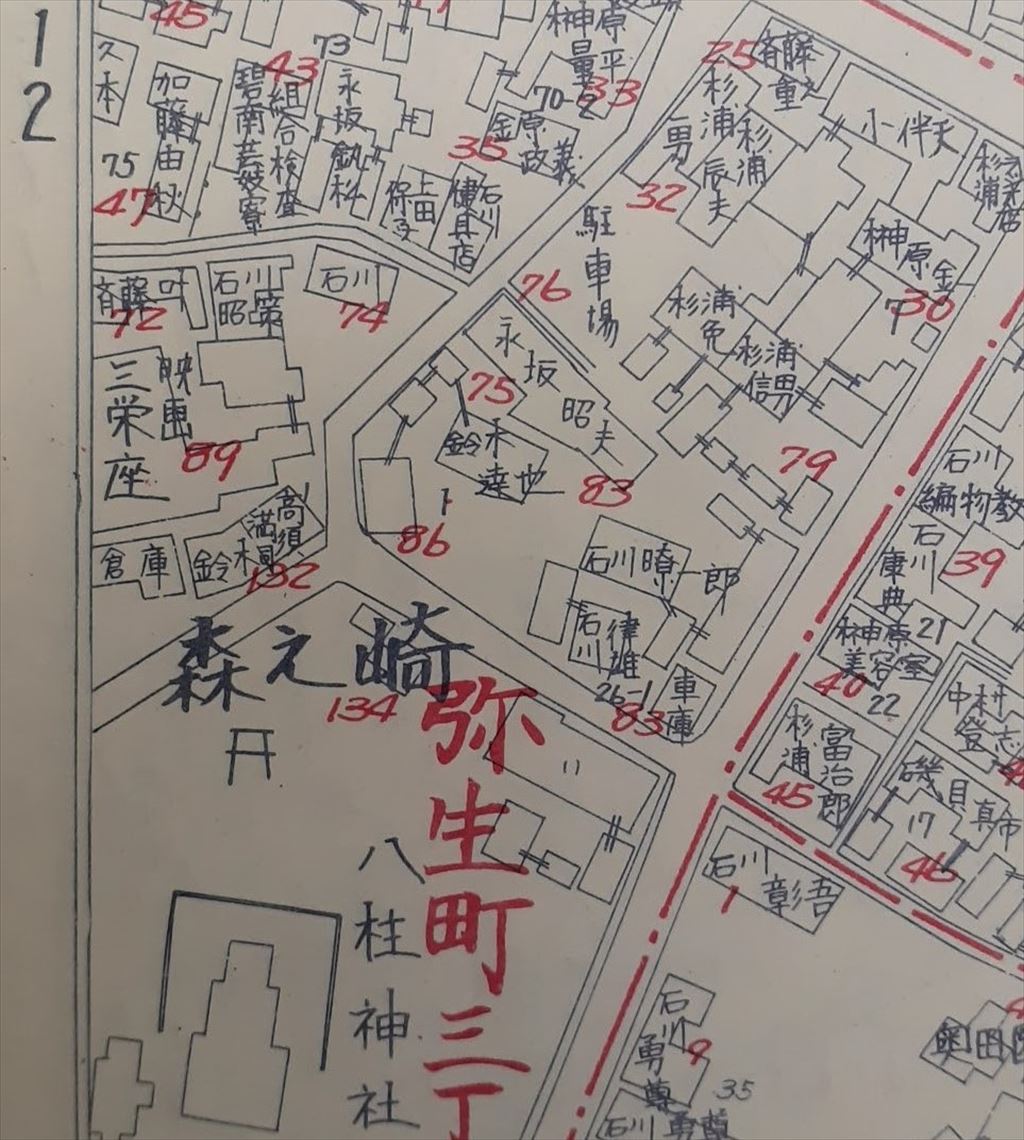 12
45
久本
加藤由秋
75
47
43
碧南芸妓寮
組合検査
73
永坂釟科
上田
保
35
金原政義
石川
建具店
榊原
平
70-2
33
25
斉藤重
杉浦勇
32
杉浦辰夫
小伴天
杉浦
榊原金
30
76
駐車場
杉浦免
杉浦信男
79
斉藤叶
72
石川昭
石川
74
三栄座
映画
89
永坂昭夫
75
鈴木達也
83
86
倉庫
鈴木
高須満
132
石川暸一郎
石川律雄
26-1
83
車庫
石川
編物教
石川康典
39
榊原
美容室
21
40
22
杉浦富治郎
45
中村登志
磯貝真市
17
46
森之崎
134
弥生町三丁
八柱神社
石川彰吾
1
石川勇尊
9
35
石川勇尊
奥田